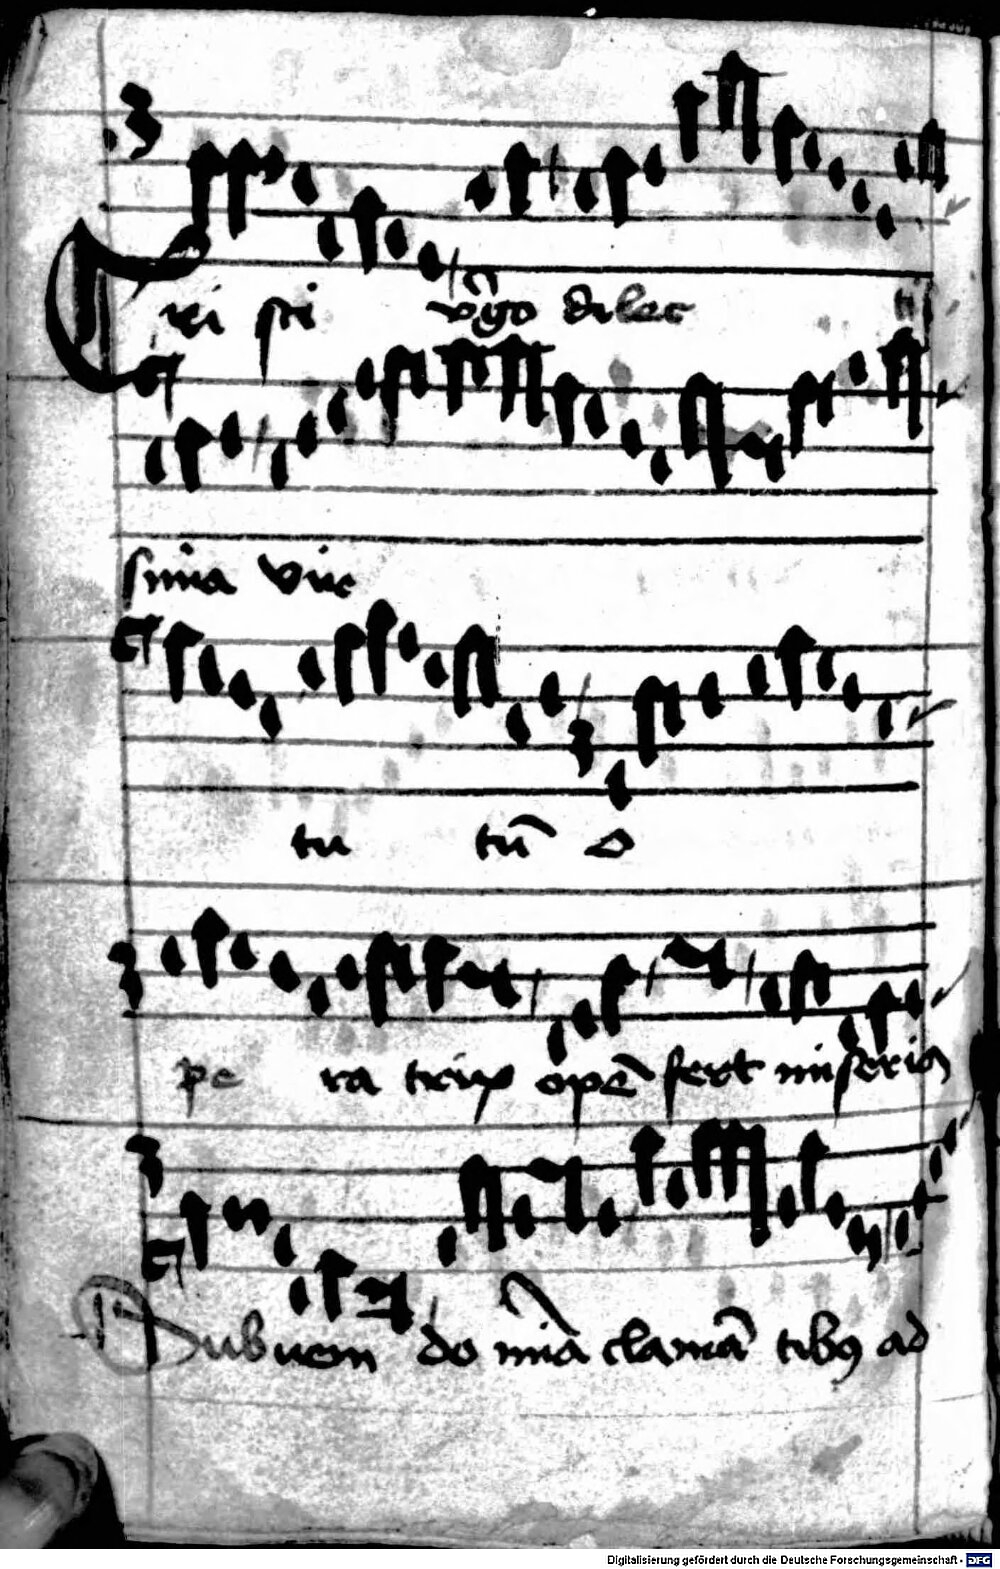 Cri sti v̄go dilec ti
sima vir
tu tū o
pe ra trix opē fert miseris
Subuem do mīa clamā tibꝯ ad
Digitalisierung gefördert durch die Deutsche Forschungsgemeinschaft - DFG